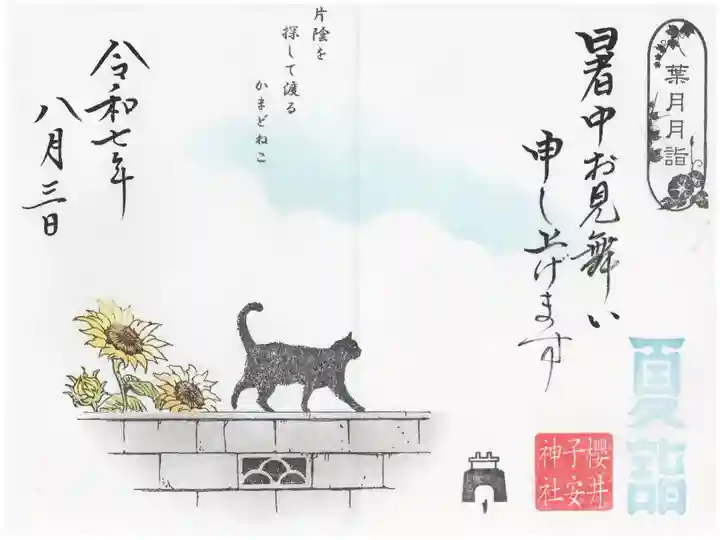 葉月月詣
暑中お見舞い
申し上げます
夏詣
櫻井
子安
神社
片陰を
探して渡る
かまどねこ
令和七年
八月三日